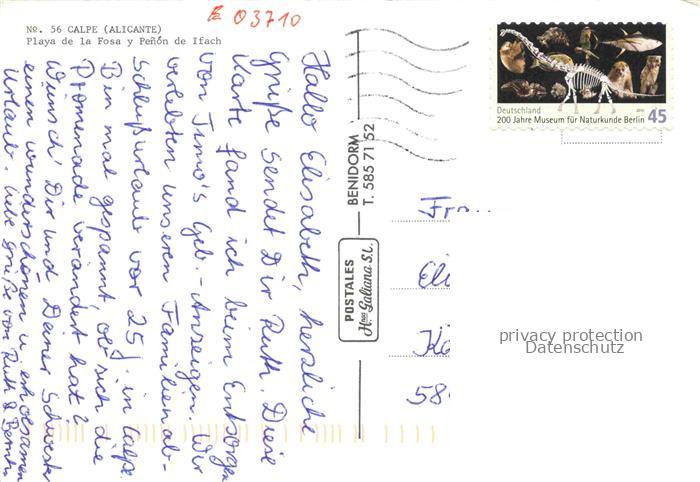 Nº. 56 CALPE (ALICANTE)
Playa de la Fosa y Peñón de Ifach
E 03710
Hallo Elisabeth, herzliche
Grüße sendet Dir Ruth. Diese
Karte fand ich beim Entsorgen
von Timo's Geb.-Anzeigen. Wir
verlebten unseren Familienab-
schlußurlaub vor 25 J. in Calpe.
Bin mal gespannt ob sich die
Promenade verändert hat?
Wünsch' Dir und Deiner Schwester
einen wunderschönen u. erholsamen
Urlaub. Liebe Grüße von Ruth &
POSTALES
Hnos Galiana S.L.
BENIDORM
T. 585 71 52
Deutschland
200 Jahre Museum für Naturkunde Berlin 45
58
privacy protection
Datenschutz